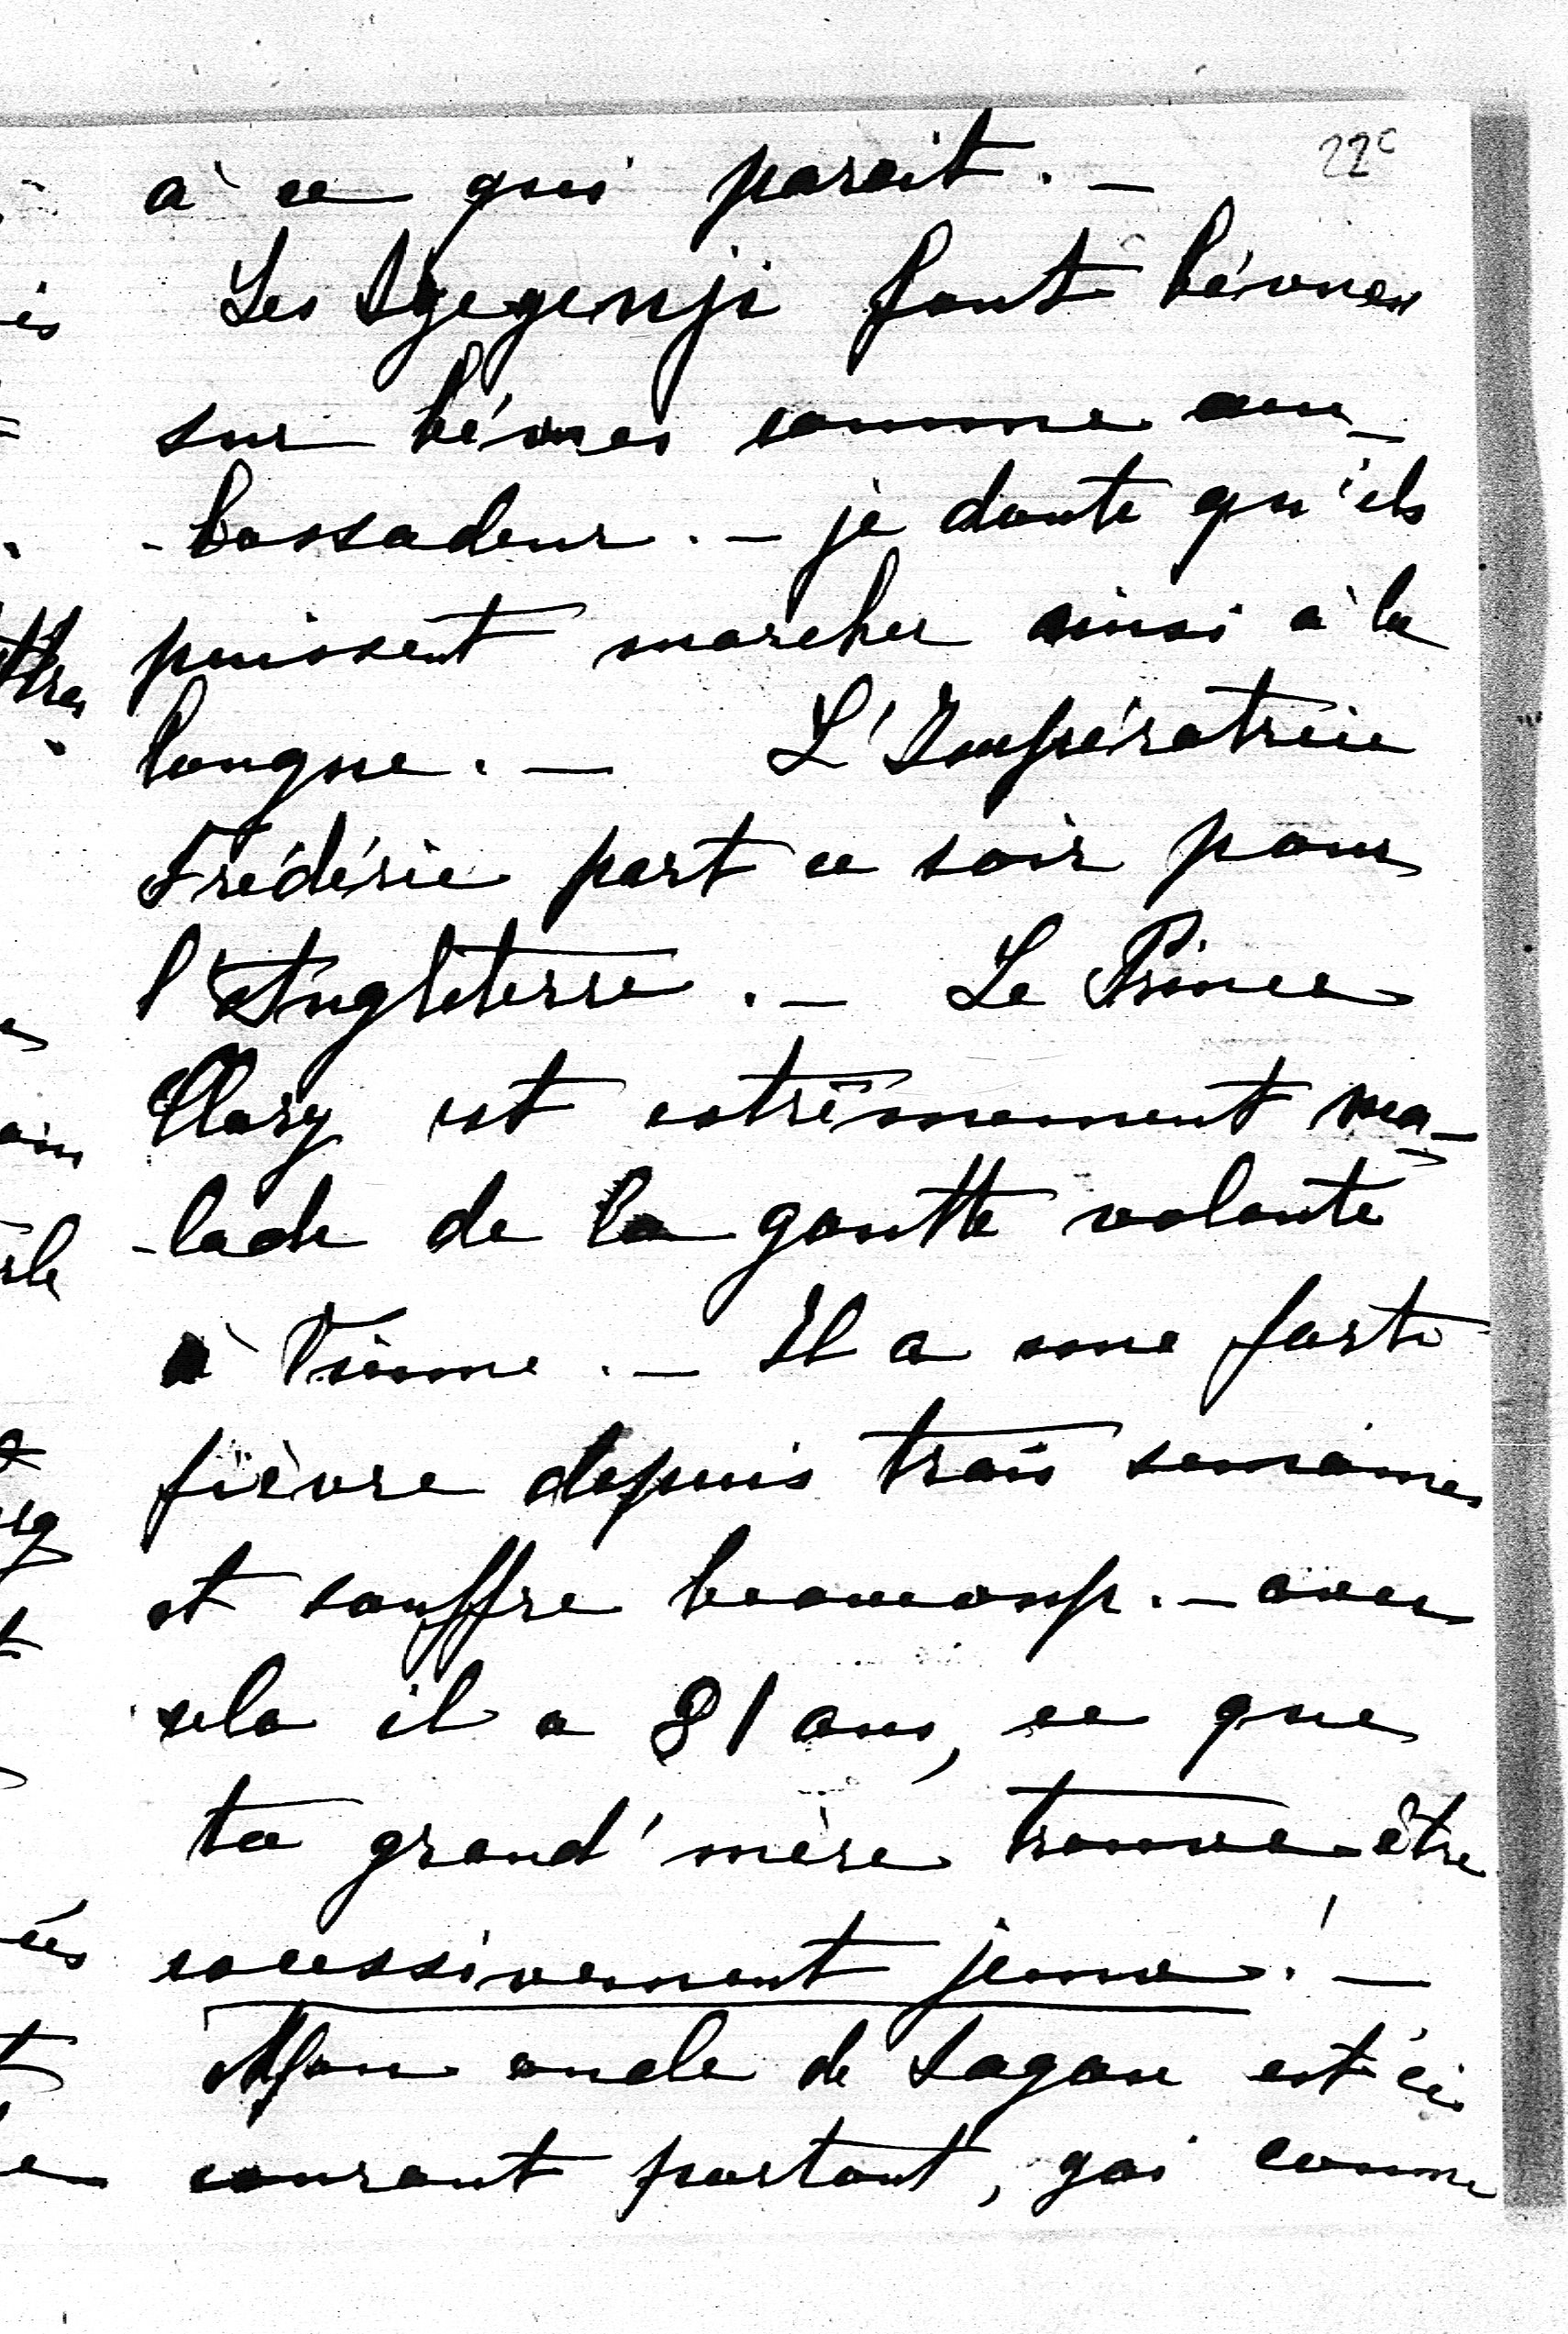 22c
à ce qui parait. —
Les Szegenji font bévues
sur bévues comme am-
-bassadeur. — je doute qu'ils
puissent marcher ainsi à la
longue. — L'Impératrice
Frédéric part ce soir pour
l'Angleterre. — Le Prince
Clary est extrêmement ma-
-lade de la goutte volante
à Vienne. — Il a une forte
fièvre depuis trois semaines
et souffre beaucoup. — avec
cela il a 81 ans, ce que
ta grand'mère trouve être
excessivement jeune! —
Mon oncle de Sagan est ici
courant partout, gai comme